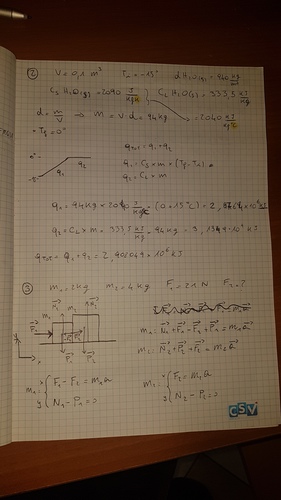 ② V = 0,1 m³ Tₐ = -15° d H₂O(s) = 940 kg/m³
Cs H₂O(s) = 2040 J/kgK CL H₂O(s) = 333,5 kJ/kg
d = m/V ⇒ m = V·d = 94 kg = 2040 kJ/kg°C
Tf = 0°
q tot = q₁ + q₂
q₁ = Cs × m × (Tf - Ti)
q₂ = CL × m
q₁ q₂
q₁ = 94 kg × 2040 J/kg°C × (0 + 15°C) = 2,
q₂ = CL × m = 333,5 kJ/kg × 94 kg = 3,1349 · 10⁴ kJ
q tot = q₁ + q₂ =
③ m₁ = 2 kg m₂ = 4 kg F₁ = 21 N F₂ = ?
m₁: N₁ + F₁ + F₂ + P₁ = m₁a
m₂: N₂ + P₂ + F₂ = m₂a
m₁: x { F₁ - F₂ = m₁a
y N₁ - P₁ = 0
m₂: x { F₂ = m₂a
y N₂ - P₂ = 0
CSV